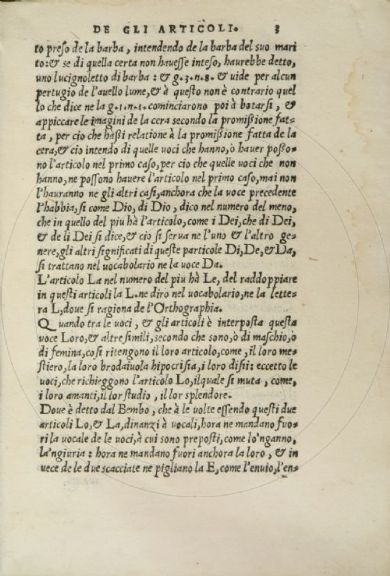 DE GLI ARTICOLI. 3
to preso de la barba, intendendo de la barba del suo mari
to: & se di quella certa non hauesse inteso, haurebbe detto,
uno lucignoletto di barba: & g.3.n.8. & uide per alcun
pertugio de l'auello lume, & à questo non è contrario quel
lo che dice ne la g.1.n.1. cominciarono poi à botarsi, &
appiccare le imagini de la cera secondo la promißione fat-
ta, per cio che haßi relatione à la promißione fatta de la
cera, & cio intendo di quelle voci che hanno, ò hauer posso-
no l'articolo nel primo caso, per cio che quelle voci che non
hanno, ne possono hauere l'articolo nel primo caso, mai non
l'hauranno ne gli altri casi, anchora che la voce precedente
l'habbia, si come Dio, di Dio, dico nel numero del meno,
che in quello del piu hà l'articolo, come i Dei, che di Dei,
& de li Dei si dice, & cio si serua ne l'uno & l'altro ge-
nere, gli altri significati di queste particole Di, De, & Da,
si trattano nel uocabolario ne la voce Da.
L'articolo La nel numero del piu hà Le, del raddoppiare
in questi articoli la L. ne dirò nel uocabolario, ne la lette-
ra L, doue si ragiona de l'Orthographia.
Quando tra le uoci, & gli articoli è interposta questa
voce Loro, & altre simili, secondo che sono, ò di maschio, ò
di femina, cosi si ritengono il loro articolo, come, il loro me-
stiero, la loro brodaiuola hipocrisia, i loro disii: eccetto le
uoci, che richieggono l'articolo Lo, ilquale si muta, come,
i loro amanti, il lor studio, il lor splendore.
Doue è detto dal Bembo, che à le uolte essendo questi due
articoli Lo, & La, dinanzi à vocali, hora ne mandano fuo-
ri la vocale de le uoci, à cui sono preposti, come lo'nganno,
la'ngiuria: hora ne mandano fuori anchora la loro, & in
uece de le due scacciate ne pigliano la E, come l'enuio, l'en-